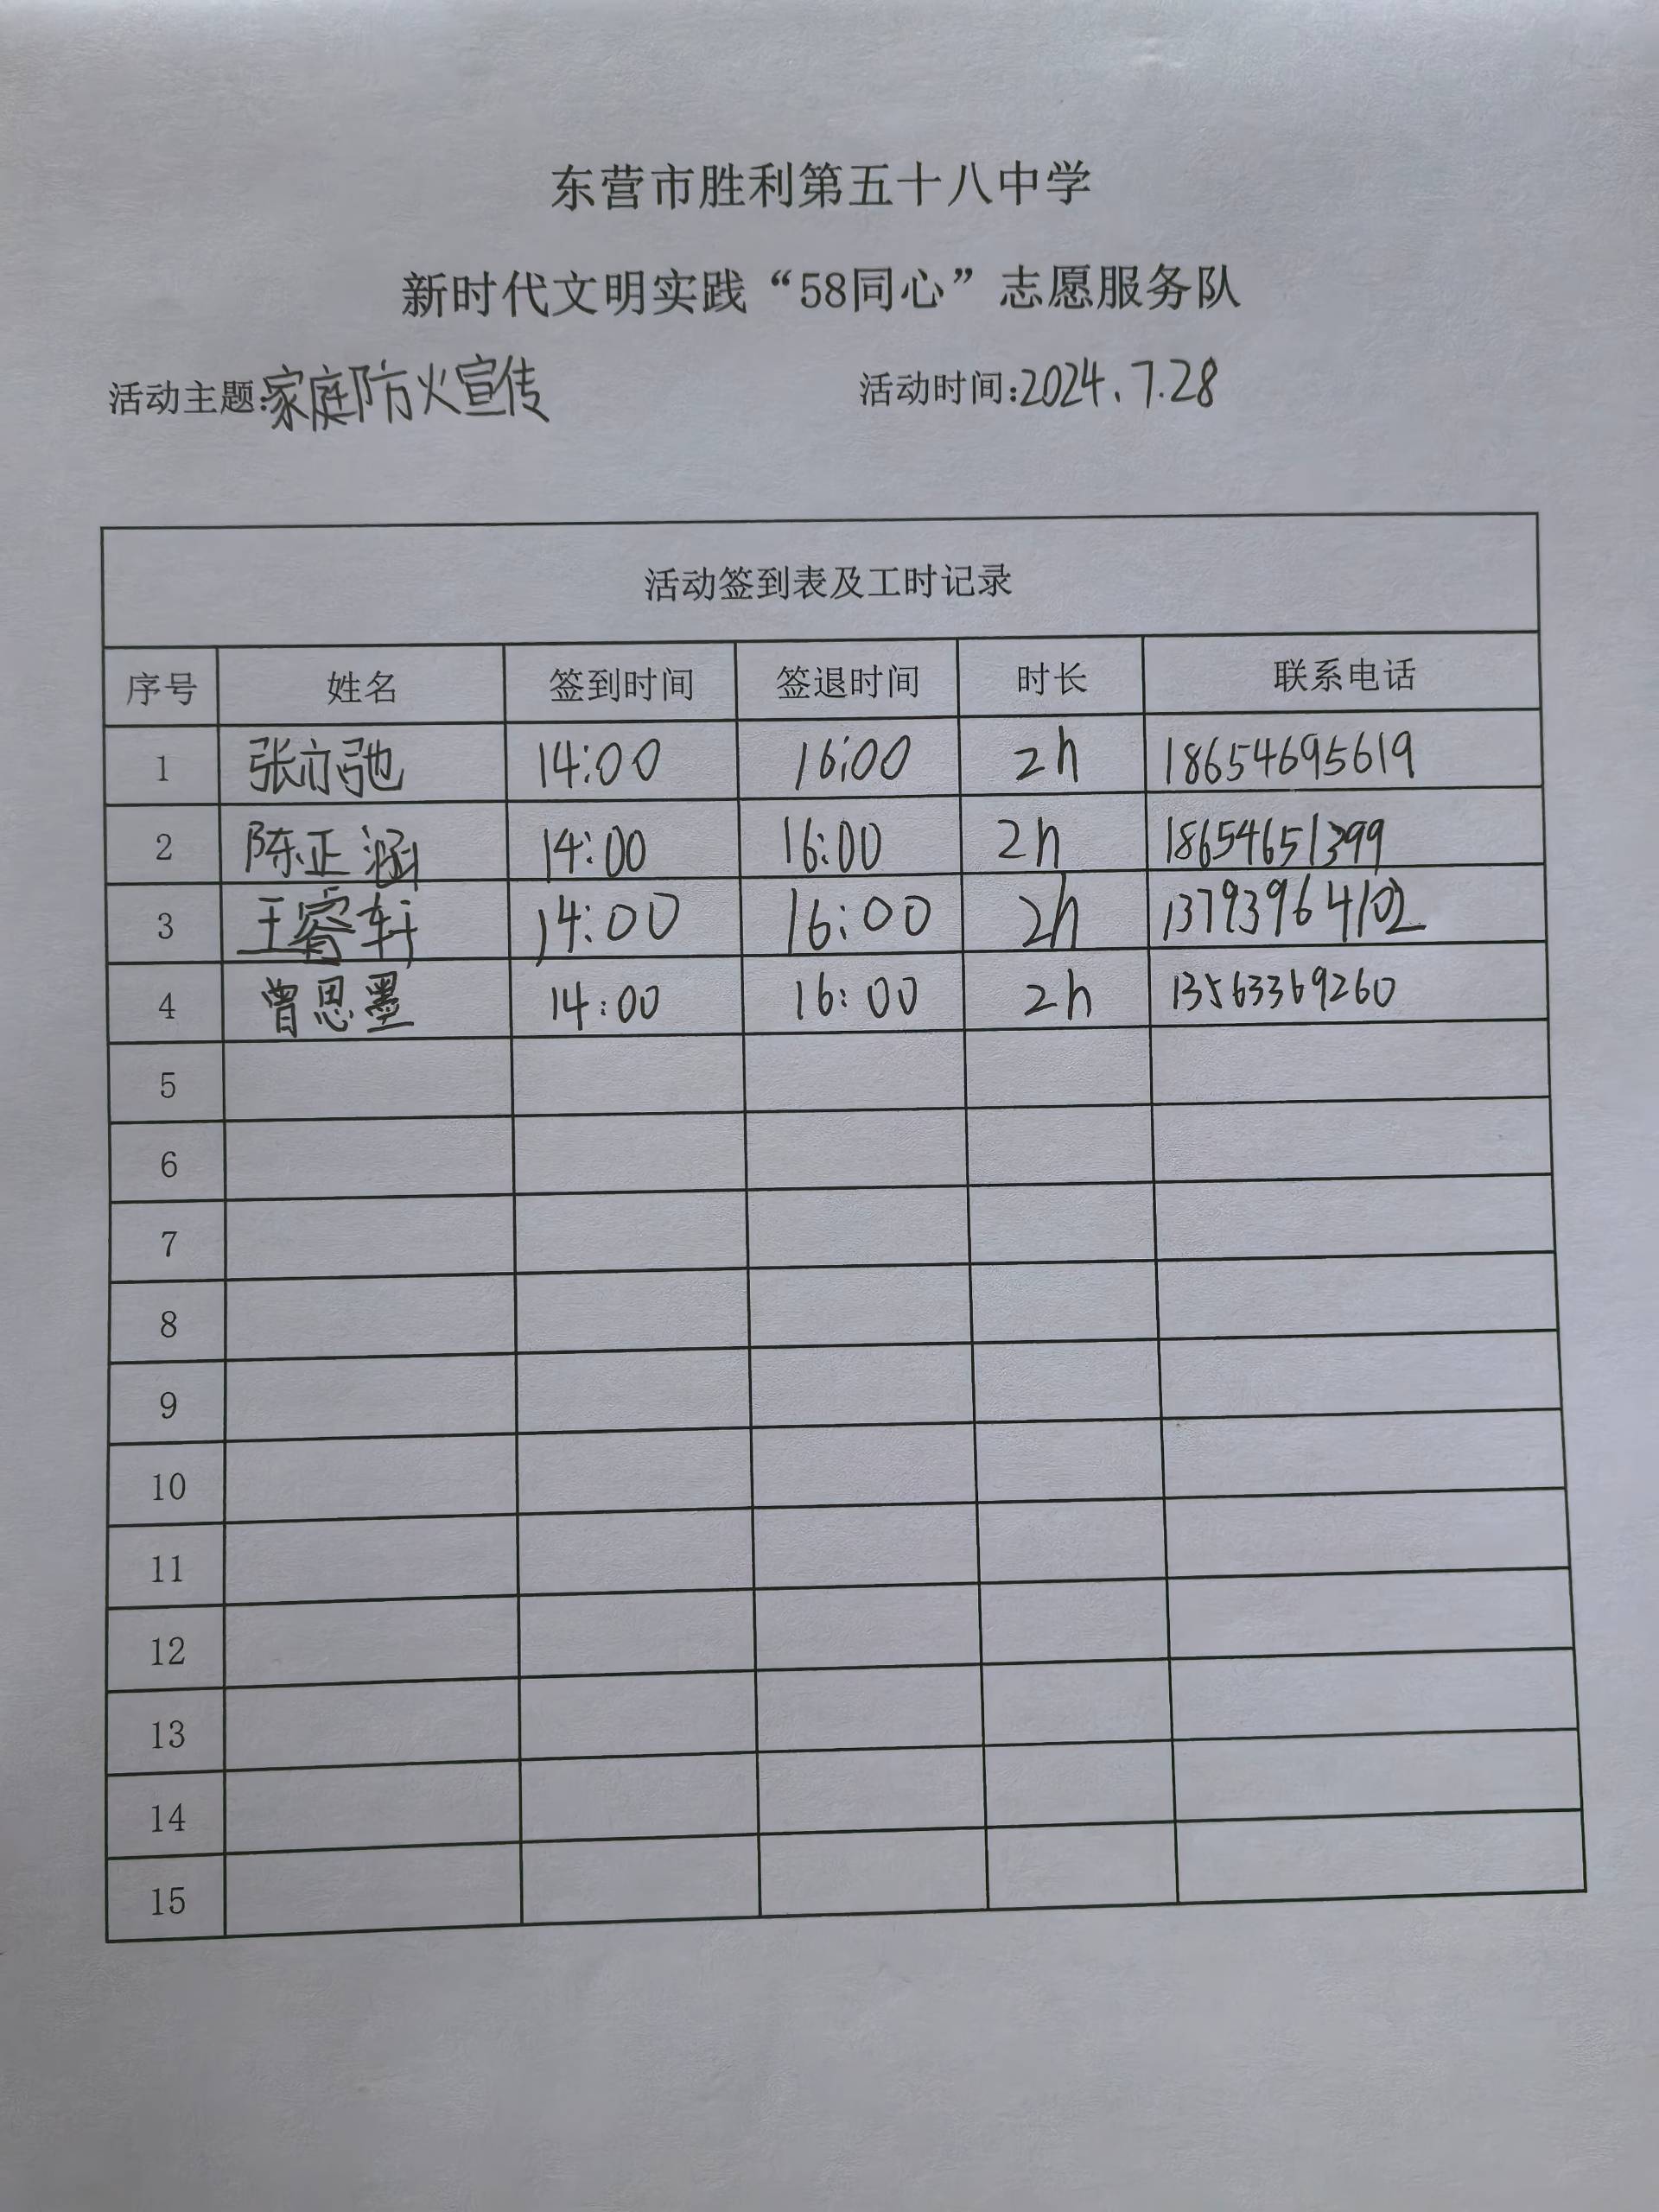 东营市胜利第五十八中学
新时代文明实践“58同心”志愿服务队
活动主题:家庭防火宣传 活动时间:2024.7.28
活动签到表及工时记录
序号 姓名 签到时间 签退时间 时长 联系电话
1 张亦弛 14:00 16:00 2h 18654695619
2 陈正涵 14:00 16:00 2h 18654651399
3 王睿轩 14:00 16:00 2h 13793964102
4 曾思墨 14:00 16:00 2h 13563369260
5
6
7
8
9
10
11
12
13
14
15